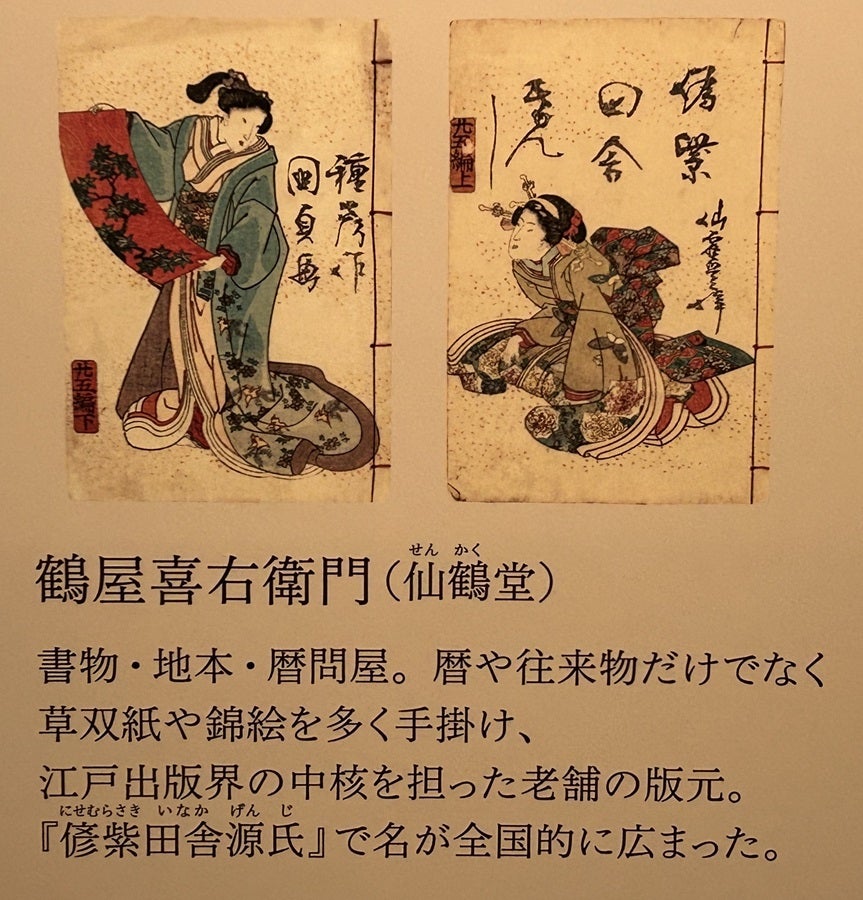 偐紫
田舎
廿五編上
種彦作
国貞画
廿五編下
せん かく
鶴屋喜右衛門（仙鶴堂）
書物・地本・暦問屋。暦や往来物だけでなく
草双紙や錦絵を多く手掛け、
江戸出版界の中核を担った老舗の版元。
にせむらさき いなか げん じ
『偐紫田舎源氏』で名が全国的に広まった。